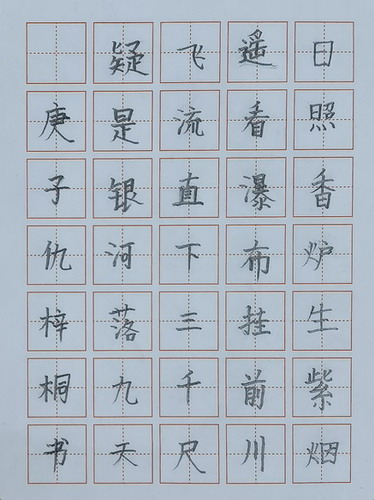 日照香炉生紫烟
遥看瀑布挂前川
飞流直下三千尺
疑是银河落九天
庚子仇梓桐书